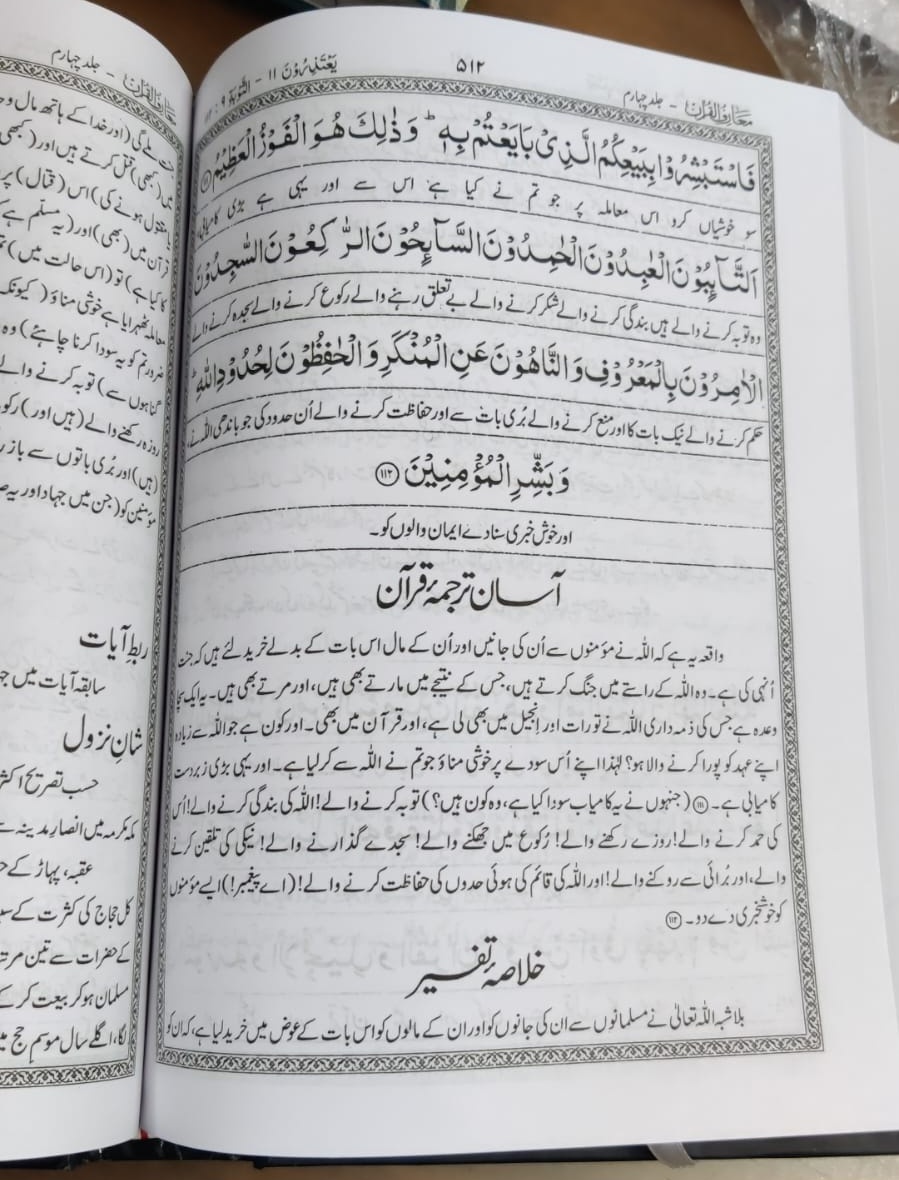 معارف القرآن - جلد چہارم
۵۱۲
یَعْتَذِرُوْنَ ۱۱ - التوبۃ ۹ :
فَاسْتَبْشِرُوْا بِبَیْعِكُمُ الَّذِیْ بَایَعْتُمْ بِهٖ ؕ وَ ذٰلِكَ هُوَ الْفَوْزُ الْعَظِیْمُ
سو خوشیاں کرو اس معاملہ پر جو تم نے کیا ہے اس سے اور یہی ہے بڑی کامیابی،
اَلتَّآىِٕبُوْنَ الْعٰبِدُوْنَ الْحٰمِدُوْنَ السَّآىِٕحُوْنَ الرّٰكِعُوْنَ السّٰجِدُوْنَ
وہ توبہ کرنے والے ہیں بندگی کرنے والے شکر کرنے والے بے تعلق رہنے والے رکوع کرنے والے سجدہ کرنے والے
الْاٰمِرُوْنَ بِالْمَعْرُوْفِ وَ النَّاهُوْنَ عَنِ الْمُنْكَرِ وَ الْحٰفِظُوْنَ لِحُدُوْدِ اللّٰهِ ؕ
حکم کرنے والے نیک بات کا اور منع کرنے والے بُری بات سے اور حفاظت کرنے والے اُن حدود کی جو باندھی اللہ نے،
وَ بَشِّرِ الْمُؤْمِنِیْنَ ۝۱۱۲
اور خوش خبری سنادے ایمان والوں کو۔
آسان ترجمۂ قرآن
واقعہ یہ ہے کہ اللہ نے مؤمنوں سے اُن کی جانیں اور اُن کے مال اس بات کے بدلے خرید لئے ہیں کہ جنت
اُنہی کی ہے۔ وہ اللہ کے راستے میں جنگ کرتے ہیں، جس کے نتیجے میں مارتے بھی ہیں، اور مرتے بھی ہیں۔ یہ ایک سچا
وعدہ ہے جس کی ذمہ داری اللہ نے تورات اور اِنجیل میں بھی لی ہے، اور قرآن میں بھی۔ اور کون ہے جو اللہ سے زیادہ
اپنے عہد کو پورا کرنے والا ہو؟ لہٰذا اپنے اُس سودے پر خوشی مناؤ جو تم نے اللہ سے کر لیا ہے۔ اور یہی بڑی زبردست
کامیابی ہے۔ (۱۱۱) (جنہوں نے یہ کامیاب سودا کیا ہے، وہ کون ہیں؟) توبہ کرنے والے! اللہ کی بندگی کرنے والے! اُس
کی حمد کرنے والے! روزے رکھنے والے! رُکوع میں جھکنے والے! سجدے گذارنے والے! نیکی کی تلقین کرنے
والے، اور بُرائی سے روکنے والے! اور اللہ کی قائم کی ہوئی حدوں کی حفاظت کرنے والے! (اے پیغمبر!) ایسے مؤمنوں
کو خوشخبری دے دو۔ (۱۱۲)
خلاصۂ تفسیر
بلاشبہ اللہ تعالیٰ نے مسلمانوں سے ان کی جانوں کو اور ان کے مالوں کو اس بات کے عوض میں خرید لیا ہے، کہ ان کو
معارف القرآن - جلد چہارم
ملے گی (اور خدا کے ہاتھ مال و
میں (کبھی) قتل کرتے ہیں اور (کبھی
مقتول ہونے کی) اس (قتال) پر
قرآن میں (بھی) اور (یہ مسلم ہے
کا کیا ہے) تو (اس حالت میں)
معاملہ ٹھہرایا ہے خوشی مناؤ (کیونکہ
ضرور تم کو یہ سودا کرنا چاہئے) وہ
گناہوں سے) توبہ کرنے والے
روزہ رکھنے والے (ہیں اور) رکوع
ہیں) اور بُری باتوں سے باز
مؤمنین کو (جن میں جہاد اور یہ
ربطِ آیات
سابقہ آیات میں
شانِ نزول
حسب تصریح اکثر
مکہ مکرمہ میں انصارِ مدینہ
عقبہ، پہاڑ کے
کل حجاج کی کثرت کے
کے حضرات سے تین
مسلمان ہو کر بیعت کر
لگا، اگلے سال موسمِ حج